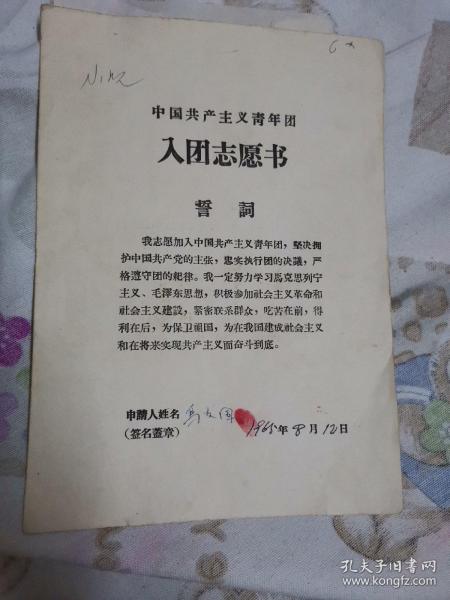 中国共产主义青年团
入团志愿书
誓 詞
我志愿加入中国共产主义青年团，坚决拥
护中国共产党的主张，忠实执行团的决議，严
格遵守团的紀律。我一定努力学习馬克思列宁
主义、毛澤东思想，积极参加社会主义革命和
社会主义建設，緊密联系群众，吃苦在前，得
利在后，为保卫祖国，为在我国建成社会主义
和在将来实现共产主义而奋斗到底。
申請人姓名
(签名蓋章) 1965年8月12日
孔夫子旧书网
www.kongfz.com